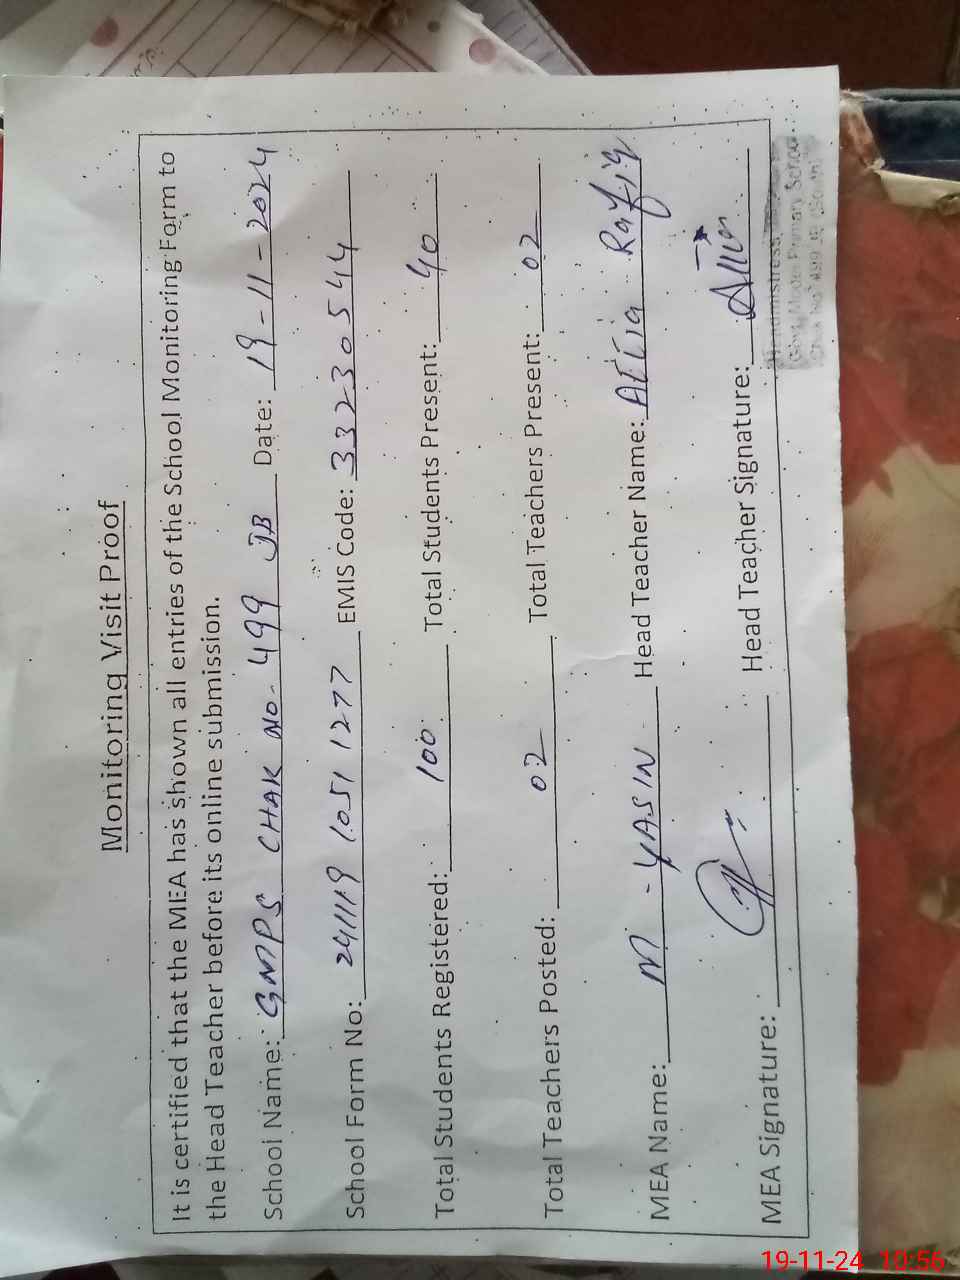 Monitoring Visit Proof
It is certified that the MEA has shown all entries of the School Monitoring Form to
the Head Teacher before its online submission.
School Name: GMPS CHAK NO. 499 JB Date: 19-11-2024
School Form No: 241119 1051 1277 EMIS Code: 33230544
Total Students Registered: 100 Total Students Present: 40
Total Teachers Posted: 02 Total Teachers Present: 02
MEA Name: M. YASIN Head Teacher Name: Rafiq
MEA Signature: Head Teacher Signature:
Headmistress
Govt. Model Primary School
Chak No. 499 JB (South)
19-11-24 10:56